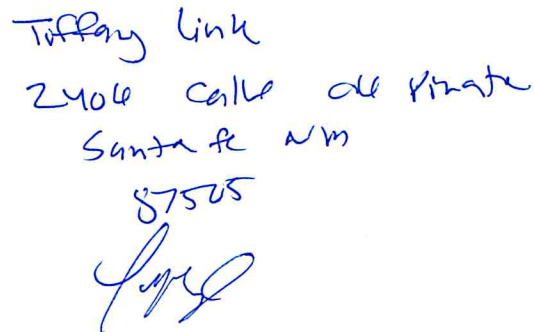 Tiffany Link
2406 Calle de Pinata
Santa fe NM
87505